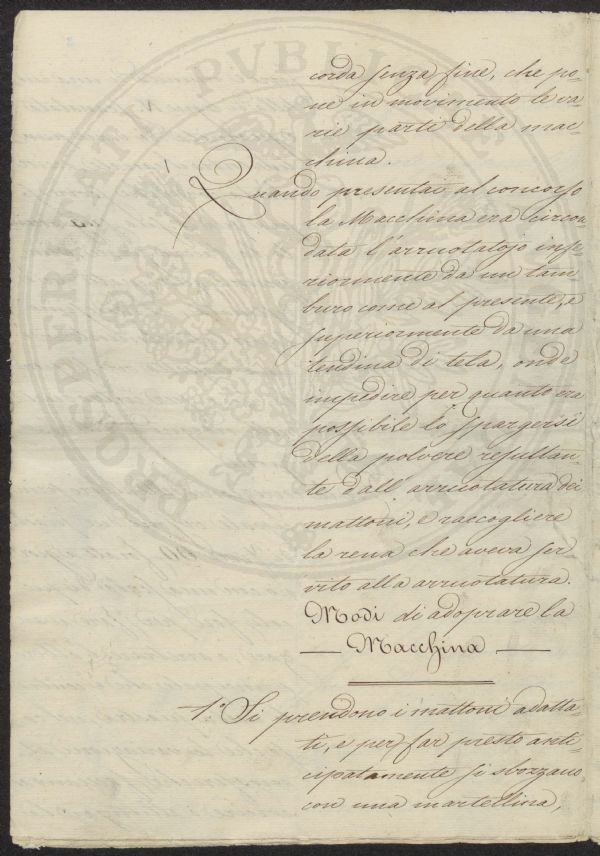 corda senza fine, che po=
ne in movimento le va=
rie parti della mac=
china.
Quando presentai al concorso
la Macchina era circon=
data l'arruotatojo infe=
riormente da un tam
buro come al presente, e
superiormente da una
tendina di tela, onde
impedire per quanto era
possibile lo spargersi
della polvere resultan=
te dall'arruotatura dei
mattoni, e raccogliere
la rena che aveva ser
vito alla arruotatura.
Modi di adoprare la
— Macchina —
1.° Si prendono i mattoni adatta=
ti, e per far presto anti=
cipatamente si sbozzano
con una martellina,
PROSPERITATI PUBLICAE